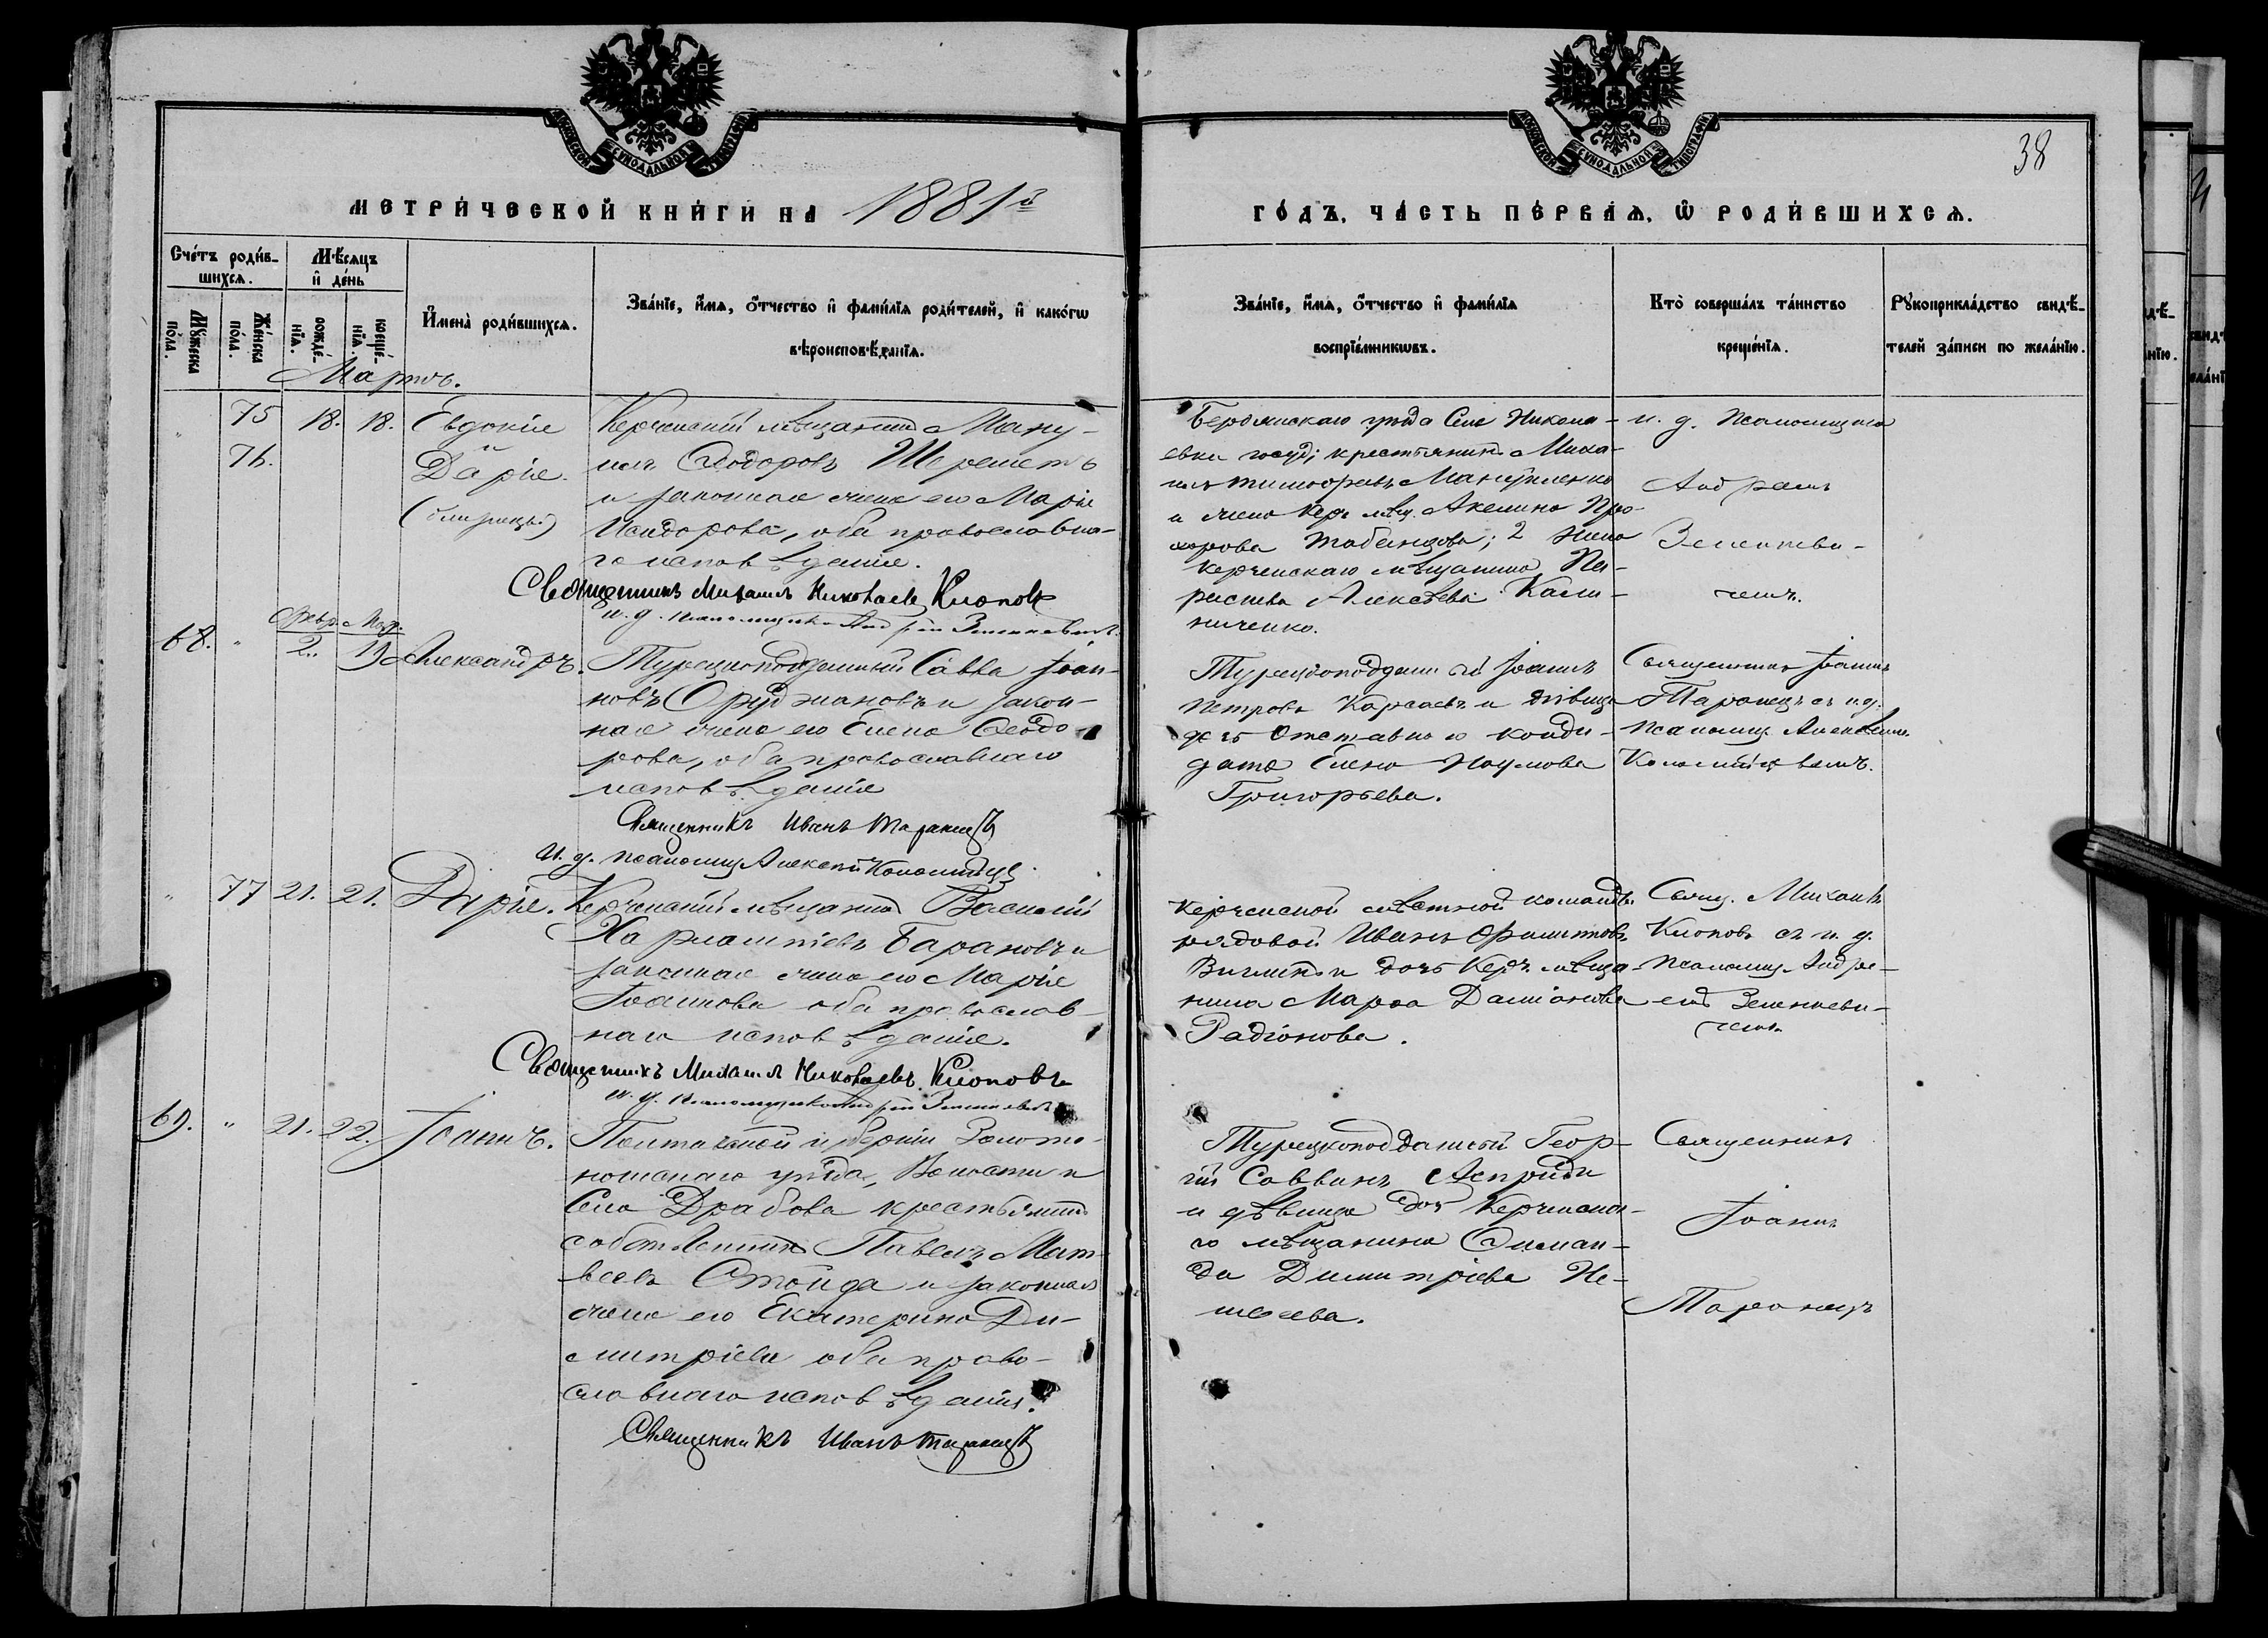 38
МОСКОВСКОЙ СУНОДАЛЬНОЙ ТИПОГРАФІИ
МОСКОВСКОЙ СУНОДАЛЬНОЙ ТИПОГРАФІИ
МЕТРИ́ЧЕСКОЙ КНИ́ГИ НА 1881й
ГО́ДЪ, ЧА́СТЬ ПЕ́РВАѦ, Ѡ РОДИ́ВШИХСѦ.
Сче́тъ роди́в-
шихсѧ.
Мѣ́сѧцъ
и҆ де́нь
Мꙋ́жеска
по́ла.
Же́нска
по́ла.
рожде́-
нїѧ.
креще́-
нїѧ.
И҆мена̀ роди́вшихсѧ.
Зва́нїе, и҆́мѧ, ѻ҆́тчество и҆ фами́лїѧ роди́телей, и҆ како́гѡ
вѣроисповѣ́данїѧ.
Зва́нїе, и҆́мѧ, ѻ҆́тчество и҆ фами́лїѧ
воспрїе́мникѡвъ.
Кто̀ соверша́лъ та́инство
креще́нїѧ.
Рꙋкоприкла́дство свидѣ́-
телей за́писи по жела́нїю.
Мартъ.
75
76.
18. 18.
Евдокія
и
Дарія.
(близнецы)
Керченскій мѣщанинъ Ману-
илъ Ѳеодоровъ Шереметъ
и законная жена его Марія
Исидорова, оба православна-
го исповѣданія.
Священникъ Михаилъ Николаевъ Клоповъ
и. д. псаломщика Андрей Зенкевичъ.
Бердянскаго уѣзда Села Никола-
евки госуд: крестьянинъ Миха-
илъ Тимофеевъ Мануйленко
и жена Кер. мѣщ. Акелина Про-
хорова 2 жена
Керченскаго мѣщанина Па-
раскева Алексѣева Кали-
ниченко.
и. д. псаломщика
Андреемъ
Зенкеви-
чемъ.
68. "
Февр. Мар.
2. 19
Александръ.
Турецкоподданный Савва Іоан-
новъ Оруджановъ и закон-
ная жена его Елена Ѳеодо-
рова, оба православнаго
исповѣданія
Священникъ Иванъ Таранецъ
и. д. псаломщ. Алексѣй Коломійцъ.
Турецкоподданный Іоаннъ
Петровъ Карсаевъ и дѣвица
дочь Отставного конди-
дата Елена Наумова
Григорьева.
Священникъ Іоаннъ
Таранецъ съ и. д.
псаломщ. Алексѣемъ
" 77 21. 21.
Дарія.
Керченскій мѣщанинъ Василій
Харлампіевъ Барановъ и
законная жена его Марія
Іоаннова оба православ-
наго исповѣданія.
Священникъ Михаилъ Николаевъ Клоповъ
и. д. псаломщика Андрей Зенкевичъ
Керченской мѣстной команды
рядовой Иванъ Филиповъ
и дочь Керч. мѣща-
нина Марѳа Даміанова
Радіонова.
Свящ. Михаилъ
Клоповъ съ и. д.
псаломщ. Андре-
емъ Зенкеви-
чемъ
69. " 21. 22.
Іоаннъ.
Полтавской губерніи Золото-
ношскаго уѣзда, Волости и
Села Драбова крестьянинъ
собственникъ Павелъ Мат-
веевъ Стойда и законная
жена его Екатерина Ди-
митріева оба право-
славнаго исповѣданія.
Священникъ Иванъ Таранецъ
Турецкоподданный Геор-
гій Саввинъ Асприди
и дѣвица дочь Керченска-
го мѣщанина
да Димитріева Не-
Священникъ
Іоаннъ
Таранецъ